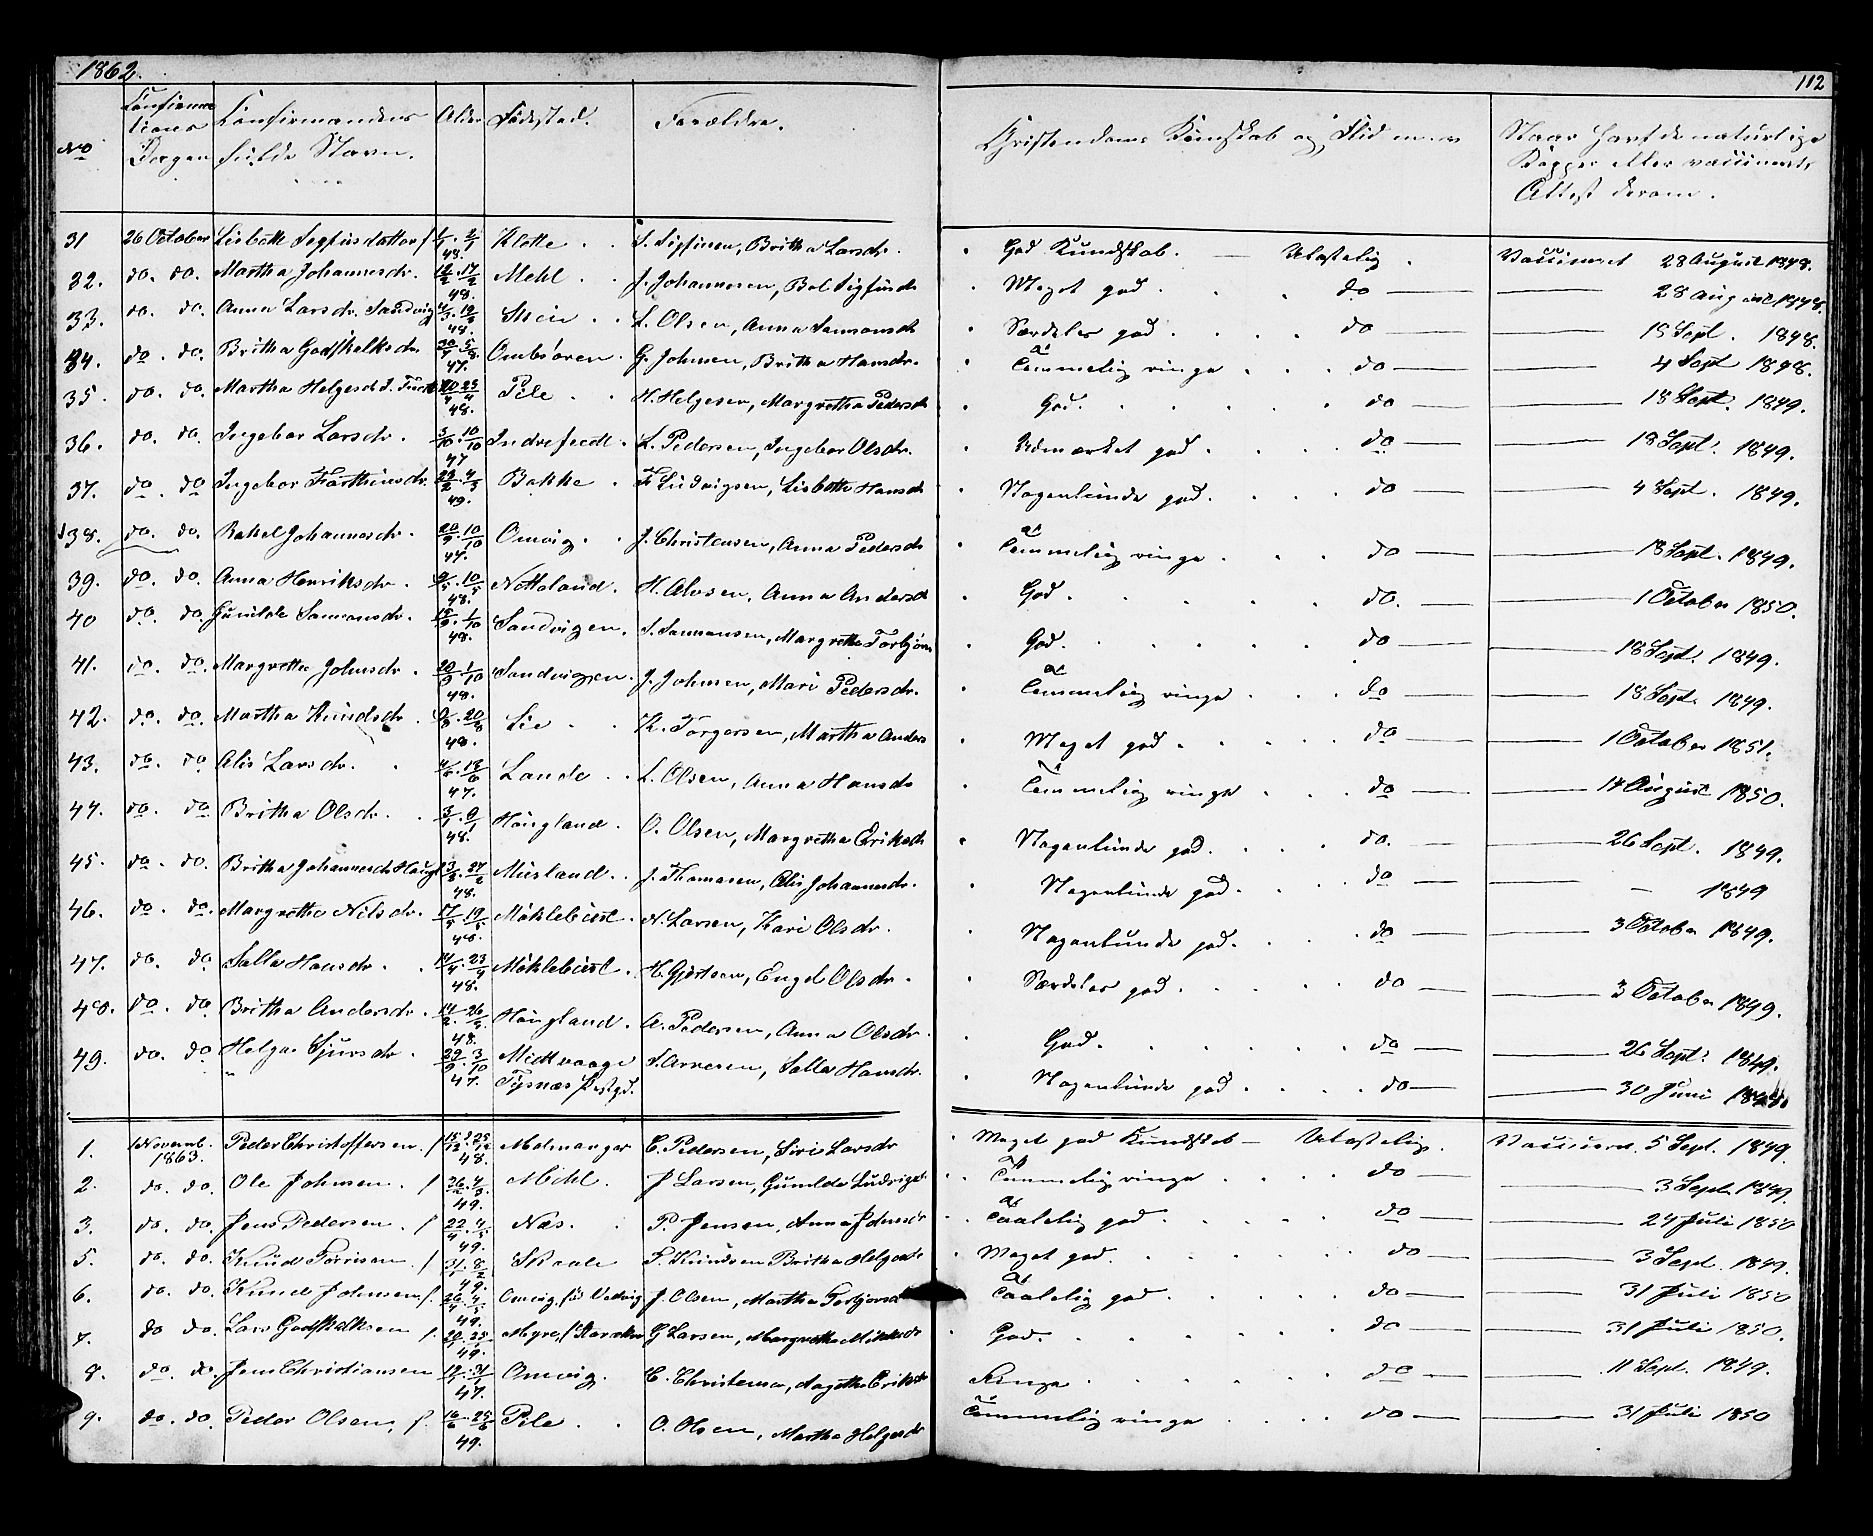 1862.
112
No
Confirma-
tions
Dagen
Confirmandens
fulde Navn.
Alder
Fødested.
Forældre.
Christendoms Kundskab og Flid m. m.
Naar havt de naturlige
Kopper eller vaccineret,
Attest derom.
31 26 October Lisbeth Sigfusdatter 48. Klotte S. Sigfusen, Britha Larsdr. God Kundskab. — Ulastelig. Vaccineret 28 August 1848.
32. do. do. Martha Johannesdr. 48. Mehl J. Johannesen, Bol Sigfusd. Meget god. do — 28 August 1848.
33. do. do. Anna Larsdr. Sandvig 48. L. Olsen, Anna Samsonsd. Særdeles god. do — 18 Sept. 1848.
34. do. do. Britha Godskalksdr. 47. Ombsøren. G. Johnsen, Britha Hansdr. Temmelig ringe do — 4 Sept 1848.
35. do. do. Martha Helgesd. 48. Pile H. Helgesen, Margretha Pedersd. God. do — 18 Sept. 1849.
36. do. do. Ingebor Larsdr. 3/10 10/10 47 L. Pedersen, Ingebor Olsdr. Udmærket god do — 18 Sept. 1849.
37. do. do Ingebor Farthinsdr. 49. Bakke F. Ludvigsen, Lisbeth Hansd. Nogenlunde god. do — 4 Sept. 1849.
38. do. do. Rakel Johannesdr. 20/9 10/10 47. Omvig. J. Christensen, Anna Pedersd. Temmelig ringe do — 18 Sept. 1849.
39. do. do. Anna Henriksdr. 48. Netteland. H. Alvsen, Anna Andersd. God. do. — 1 October 1850.
40 do. do. Gunilde Samsonsdr. 48. Sandvigen. S. Samsonsen, Margretha Torbjørns God. do — 18 Sept. 1849.
41. do. do. Margretha Johnsdr. 48. Sandvigen. J. Johnsen, Mari Pedersdr. Temmelig ringe do — 18 Sept. 1849.
42. do. do. Martha Knudsdr. 48. Lie K. Torgersen, Martha Anders Meget god do — 1 October 1851.
43. do. do Alis Larsdr. 47. Lande L. Olsen, Anna Hansdr Temmelig ringe do — 14 August 1850.
44. do. do Britha Olsdr. 3/1 9/1 48. Haugland. O. Olsen, Margretha Eriksd. Nogenlunde god. do. — 26 Sept. 1849.
45. do. do. Britha Johannesd. Haugl 48. Musland. J. Thomasen, Alis Johannesdr. Nogenlunde god. do — 1849
46. do. do. Margretha Nilsdr. 17/5 19/5 48. Møklebust. N. Larsen, Kari Olsdr. Nogenlunde god. do — 3 October 1849.
47. do. do Salla Hansdr. 14/4 23/4 48. Møklebust. H. Gjertsen, Engel Olsdr. Særdeles god do — 3 October 1849.
48. do. do Britha Andersdr. 48. Haugland. A. Pedersen, Anna Olsdr. God. do — 26 Sept. 1849.
49. do. do Helga Sjursdr. 29/9 3/10 47. Midtvaage S. Arnesen, Salla Hansdr. Nogenlunde god do — 30 Juni
Tysnæs Pestgd.
1. 1 Novemb. 1863. Peder Christoffersen. f 48. Melmanger C. Pedersen, Siri Larsdr Meget god Kundskab — Ulastelig. Vaccineret. 5 Sept. 1849.
2. do. do. Ole Johnsen. f 49. Mehl. J Larsen, Gunilda Ludvigs. Temmelig ringe do — 3 Sept. 1849.
3. do. do. Jens Pedersen. f 49. Næs. P. Jensen, Anna Johnsdr Taalelig god. do — 24 Juli 1850
5. do. do. Knud Torrisen f 31/1 8/2 49. Skaale T. Knudsen Britha Helgesd. Meget god. do — 3 Sept. 1849.
6. do. do. Knud Johnsen f. 49. Omvig, J. Olsen, Martha Torbjørsd Taalelig god do — 31 Juli 1850
7. do do. Lars Godskalksen f. 49. Myre, G Larsen, Margretha God. do — 31 Juli 1850.
8. do. do. Jens Christiansen 47. Omvig. C. Christensen, Aagotha Eriksdr Ringe do — 11 Sept. 1849.
9. do. do. Peder Olsen, f. 49. Pile. O. Olsen, Martha Helgesdr Temmelig ringe do — 31 Juli 1850